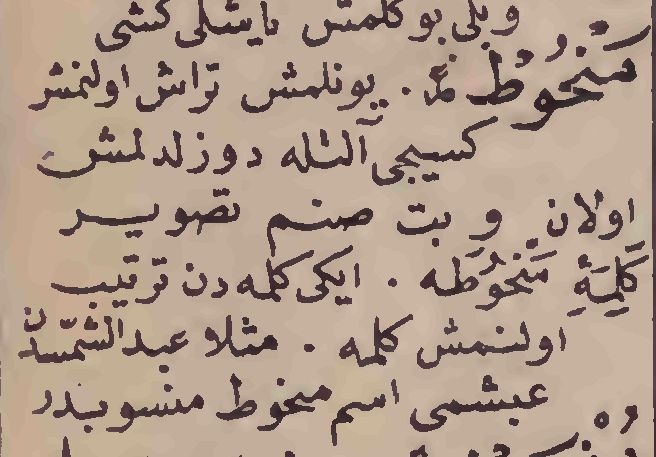 و بلی بوکلمش یاشلی کشی
مَنْحُوطْ ع. یونلمش تراش اولنمش
کسیجی آلتله دوزلدلمش
اولان و بت صنم تصویر
کَلِمَۀِ مَنْحُوطَه. ایکی کلمه دن ترتیب
اولنمش کلمه. مثلا عبدالشّمسدن
عبشمی اسم منحوط منسوبدر